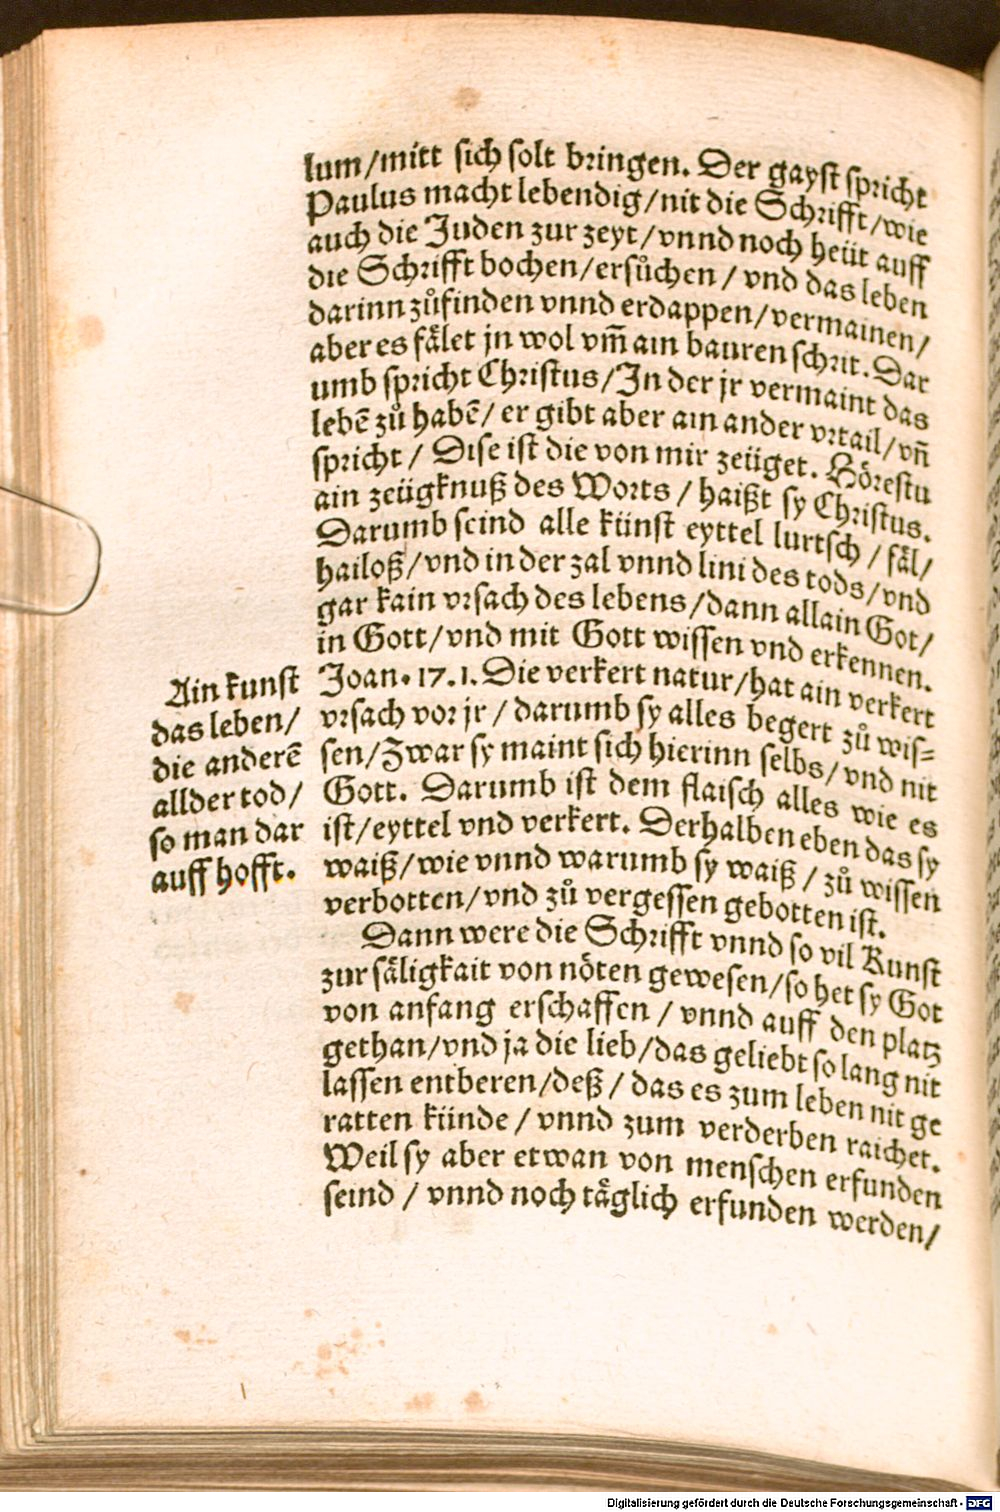 lum/mitt sich solt bringen. Der gayst spricht
Paulus macht lebendig/nit die Schrifft/wie
auch die Juden zur zeyt/vnnd noch heüt auff
die Schrifft bochen/ersůchen/vnd das leben
darinn zůfinden vnnd erdappen/vermainen/
aber es fälet jn wol vm̃ ain bauren schrit. Dar
umb spricht Christus/In der jr vermaint das
lebẽ zů habẽ/er gibt aber ain ander vrtail/vñ
spricht/Dise ist die von mir zeüget. Hörestu
ain zeügknuß des Worts/haißt sy Christus.
Darumb seind alle künst eyttel lurtsch/fäl/
hailoß/vnd in der zal vnnd lini des tods/vnd
gar kain vrsach des lebens/dann allain Got/
in Gott/vnd mit Gott wissen vnd erkennen.
Joan. 17.1. Die verkert natur/hat ain verkert
vrsach vor jr/darumb sy alles begert zů wis-
sen/Zwar sy maint sich hierinn selbs/vnd nit
Gott. Darumb ist dem flaisch alles wie es
ist/eyttel vnd verkert. Derhalben eben das sy
waiß/wie vnnd warumb sy waiß/zů wissen
verbotten/vnd zů vergessen gebotten ist.
Ain kunst
das leben/
die anderẽ
all der tod/
so man dar
auff hofft.
Dann were die Schrifft vnnd so vil Kunst
zur säligkait von nöten gewesen/so het sy Got
von anfang erschaffen/vnnd auff den platz
gethan/vnd ja die lieb/das geliebt so lang nit
lassen entberen/deß/das es zum leben nit ge
ratten künde/vnnd zum verderben raichet.
Weil sy aber etwan von menschen erfunden
seind/vnnd noch täglich erfunden werden/
Digitalisierung gefördert durch die Deutsche Forschungsgemeinschaft - DFG